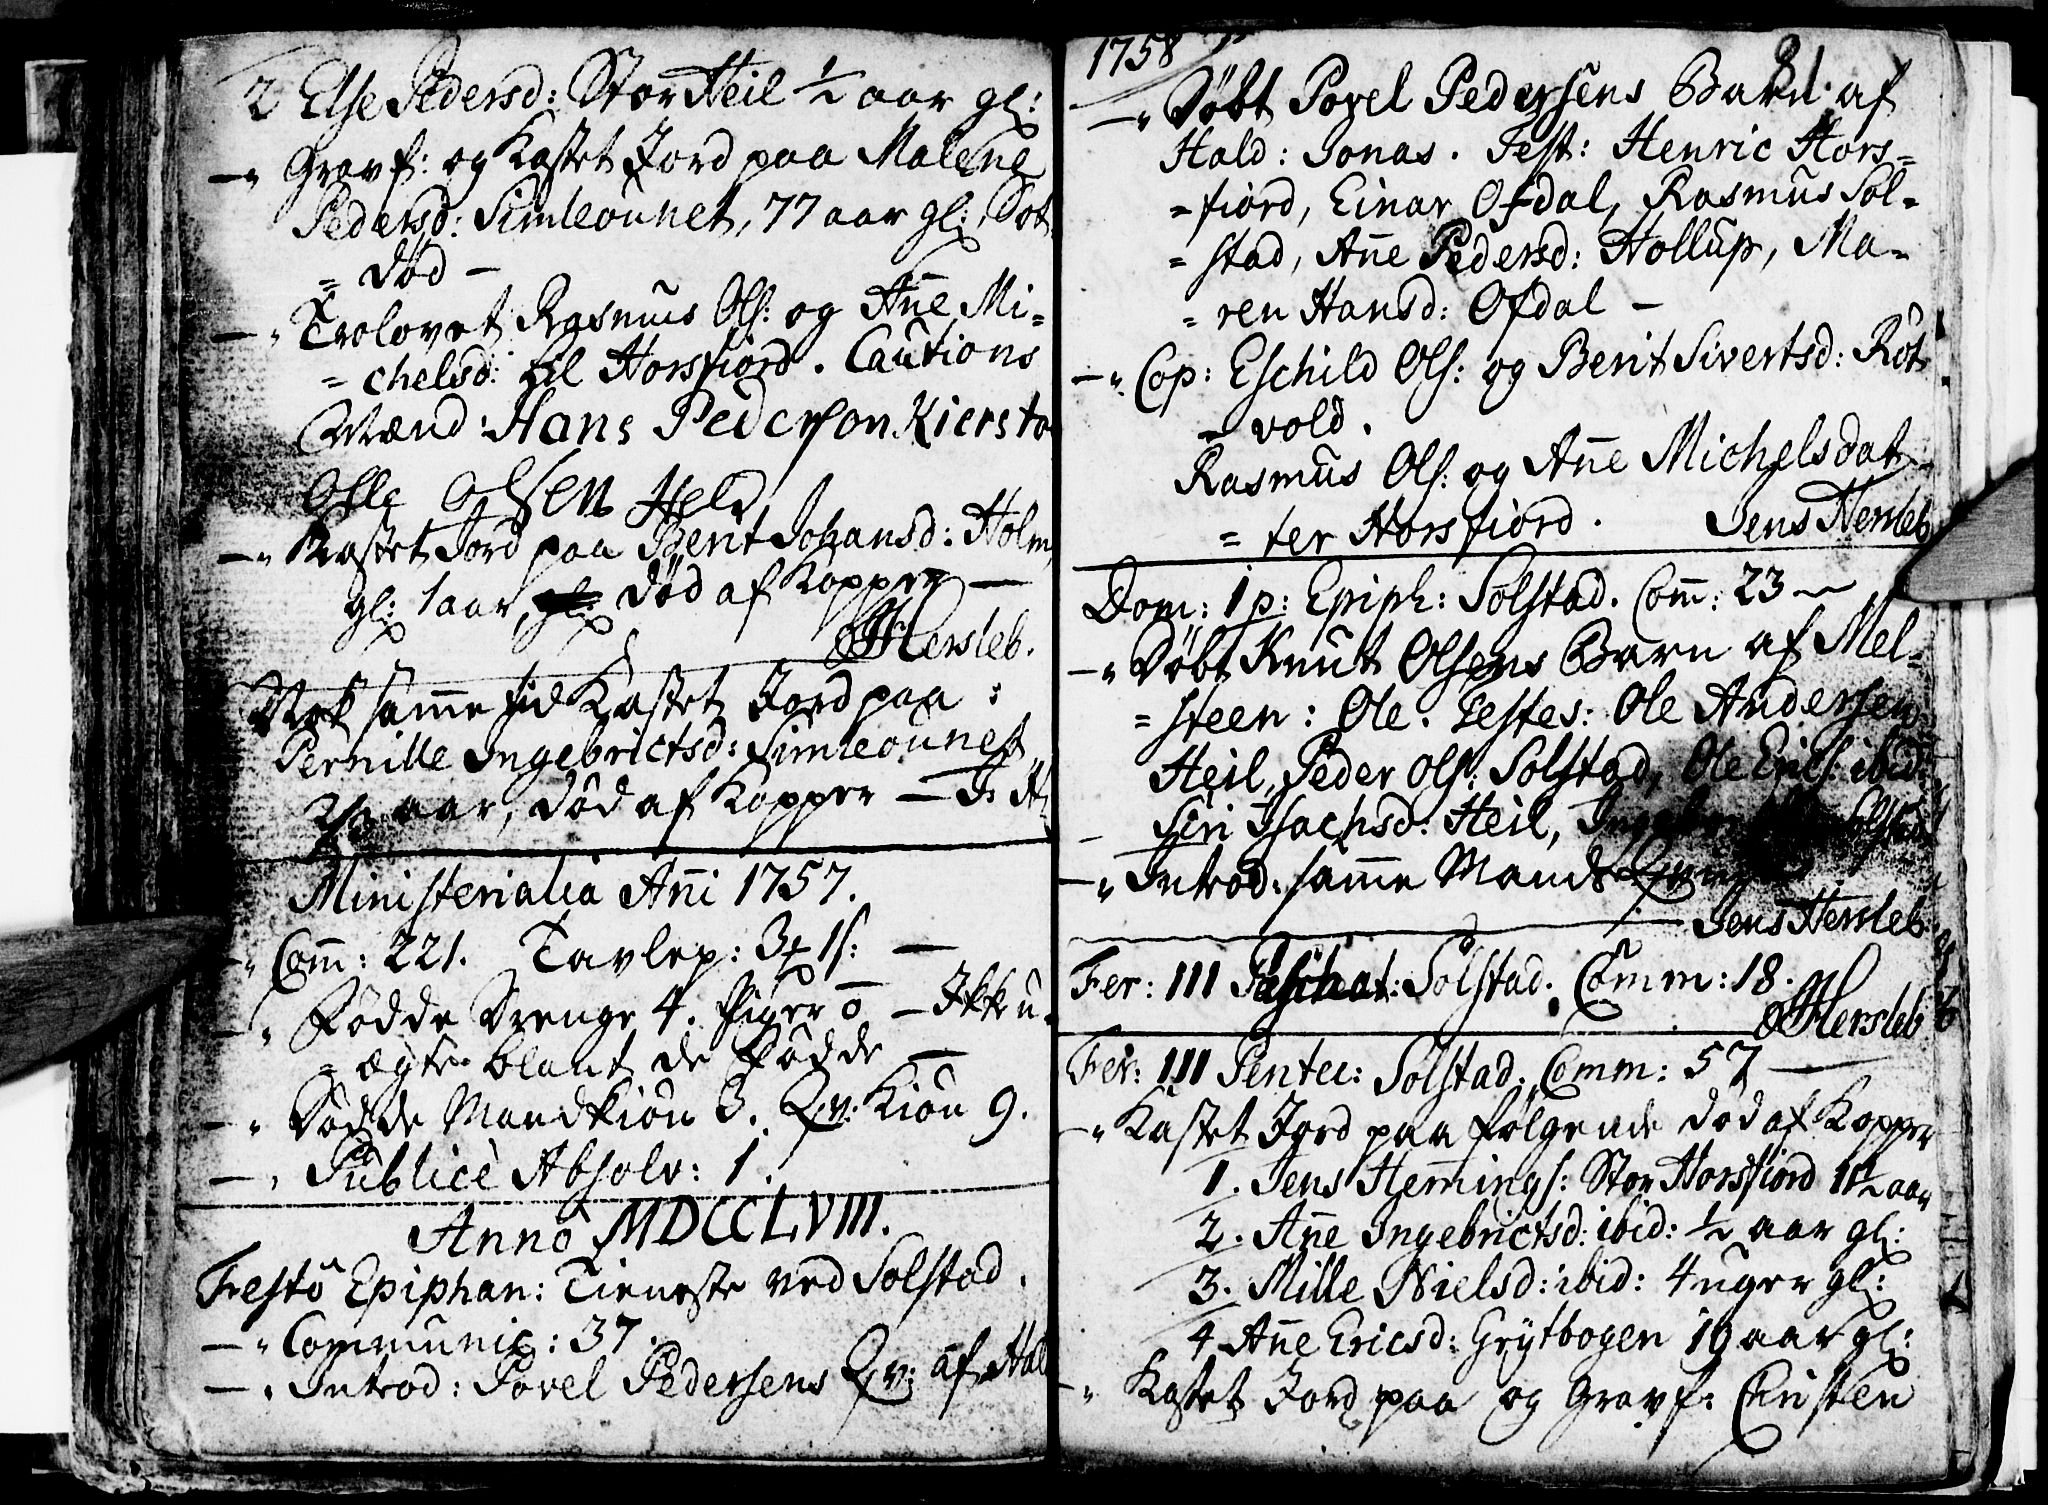 2 Else Pedersd: Stor Heil ½ aar gl:
—" Gravf: og Kastet Jord paa Malene
Pedersd: Simleøunet, 77 aar gl: Sot
= død —
—" Trolovet Rasmus Ols: og Añe Mi=
= chelsd: til Horsfiord. Cautions
Mænd: Hans Pederson Kiersta
Olle Olsen Held
—" Kastet Jord paa Berit Johansd: Holm,
gl: 1 aar, død af Kopper —
Hersleb.
Nok samme tid Kastet Jord paa:
Pernille Ingebrictsd: Simleøunet
aar, død af Kopper — J. H.
Ministerialia Añi 1757.
—" Com̃: 221. Tavlep: 3 1 s: —
—" Fødde Drenge 4. Piger 0 — Ikke u-
= ægte blant de Fødde —
—" Dødde Mandkiøn 3. Qv: Kiøn 9.
—" Publicè Absolv: 1.
Anno MDCCLVIII.
Festo Epiphan: Tieneste ved Solstad.
—" Communic: 37.
—" Introd: Povel Pedersens Qv: af Hal
1758
81.
—" Døbt Povel Pedersens Barn af
Hald: Jonas. Test: Henric Hors=
= fiord, Einar Ofdal, Rasmus Sol=
= stad, Añe Pedersd: Hollup, Ma=
= ren Hansd: Ofdal —
—" Cop: Eschild Ols: og Berit Sivertsd: Røt
= vold.
Rasmus Ols: og Añe Michelsdat
= ter Horsfiord. Jens Hersleb
Dom: 1 p: Epiph: Solstad. Com̃: 23 —
—" Døbt Knut Olsens Barn af Mel=
= steen: Ole. Testes: Ole Andersen
Heil, Peder Ols: Solstad, Ole Erics: ibid:
Siri Isachsd: Heil, Solstad
—" Introd: samme Mands
— Jens Hersleb
Fer: III Paschat: Solstad. Comm: 18.
Hersleb
Fer: III Pentec: Solstad. Comm: 57 —
—" Kastet Jord paa følgende død af Kopper
1. Jens Hem̃ings: Stor Horsfiord 1½ aar
2. Añe Ingebrictsd: ibid: ½ aar gl:
3. Mille Nielsd: ibid: 4 uger gl:
4 Añe Ericsd: Grÿtbogen 10 aar gl:
—" Kastet Jord paa og Gravf: Christen